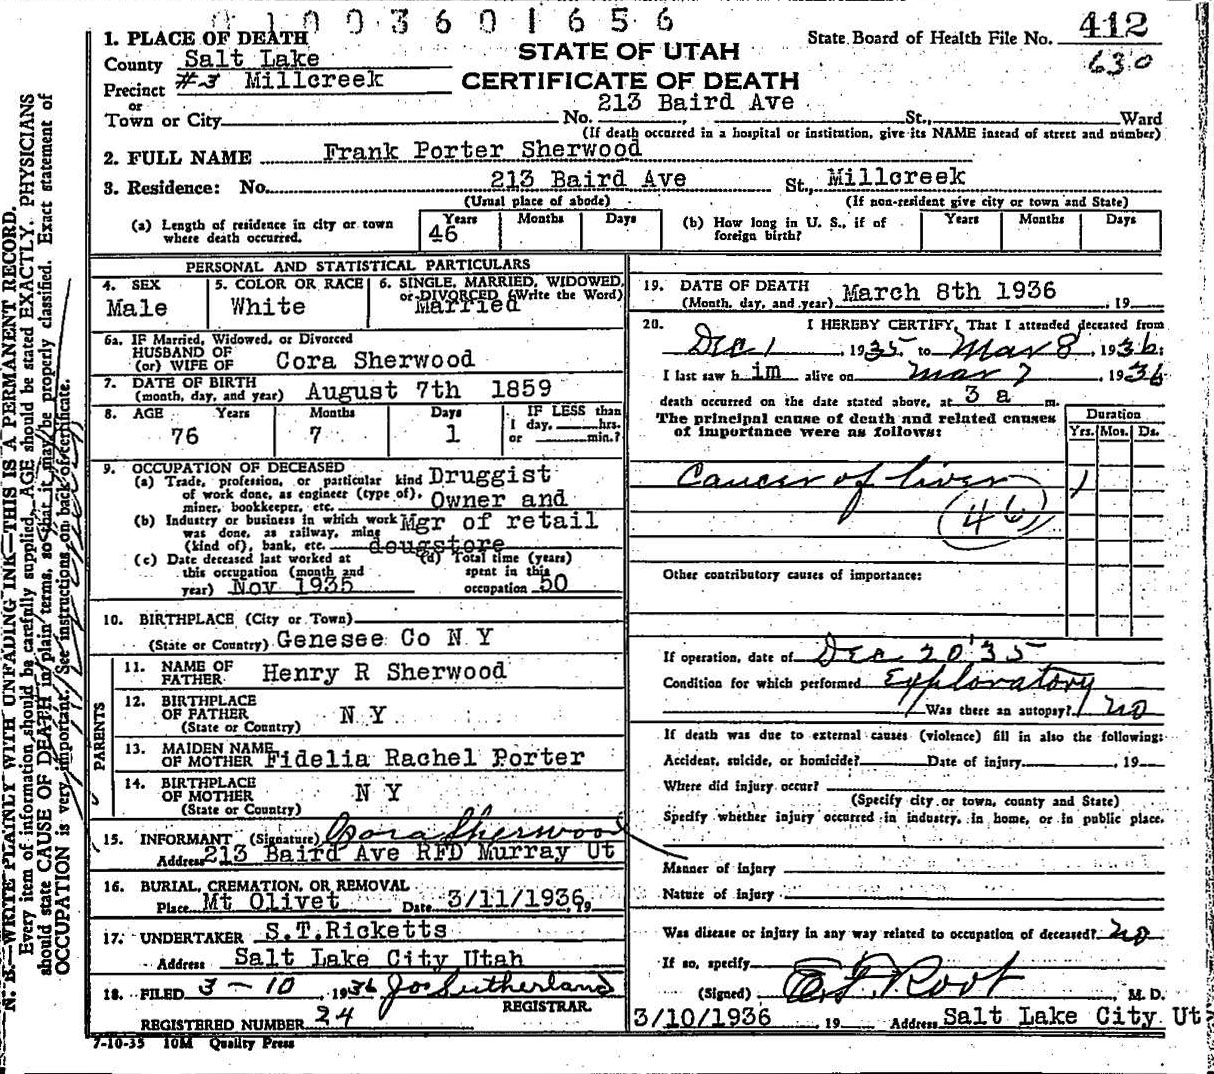 0 1 0 0 3 6 0 1 6 5 6
412
630
1. PLACE OF DEATH
State Board of Health File No.
County Salt Lake
STATE OF UTAH
Precinct #3 Millcreek
CERTIFICATE OF DEATH
or
213 Baird Ave
Town or City No. St., Ward
(If death occurred in a hospital or institution, give its NAME insead of street and number)
2. FULL NAME Frank Porter Sherwood
3. Residence: No. 213 Baird Ave St., Millcreek
(Usual place of abode) (If non-resident give city or town and State)
(a) Length of residence in city or town where death occurred. Years 46 Months Days
(b) How long in U. S., if of foreign birth? Years Months Days
PERSONAL AND STATISTICAL PARTICULARS
4. SEX Male
5. COLOR OR RACE White
6. SINGLE, MARRIED, WIDOWED, or DIVORCED (Write the Word) Married
6a. IF Married, Widowed, or Divorced
HUSBAND OF
(or) WIFE OF Cora Sherwood
7. DATE OF BIRTH
(month, day, and year) August 7th 1859
8. AGE Years Months Days IF LESS than
76 7 1 1 day, hrs.
or min.?
9. OCCUPATION OF DECEASED
(a) Trade, profession, or particular kind of work done, as engineer (type of), miner, bookkeeper, etc. Druggist Owner and
(b) Industry or business in which work was done, as railway, mine (kind of), bank, etc. Mgr of retail dougstore
(c) Date deceased last worked at this occupation (month and year) Nov 1935
(d) Total time (years) spent in this occupation 50
10. BIRTHPLACE (City or Town)
(State or Country) Genesee Co N Y
PARENTS
11. NAME OF FATHER Henry R Sherwood
12. BIRTHPLACE OF FATHER (State or Country) N Y
13. MAIDEN NAME OF MOTHER Fidelia Rachel Porter
14. BIRTHPLACE OF MOTHER (State or Country) N Y
15. INFORMANT (Signature) Cora Sherwood
Address 213 Baird Ave RFD Murray Ut
16. BURIAL, CREMATION, OR REMOVAL
Place Mt Olivet Date 3/11/1936, 19
17. UNDERTAKER S.T.Ricketts
Address Salt Lake City Utah
18. FILED 3-10, 1936 Jos Sutherland
REGISTRAR.
REGISTERED NUMBER 24
7-10-35 10M Quality Press
19. DATE OF DEATH
(Month, day, and year) March 8th 1936, 19
20. I HEREBY CERTIFY, That I attended deceased from
Dec 1, 1935 to Mar 8, 1936:
I last saw h im alive on Mar 7, 1936
death occurred on the date stated above, at 3 a m.
The principal cause of death and related causes of importance were as follows:
Duration
Yrs. Mos. Ds.
Cancer of liver 1
(46)
Other contributory causes of importance:
If operation, date of Dec 20 '35
Condition for which performed Exploratory
Was there an autopsy? no
If death was due to external causes (violence) fill in also the following:
Accident, suicide, or homicide? Date of injury , 19
Where did injury occur?
(Specify city or town, county and State)
Specify whether injury occurred in industry, in home, or in public place.
Manner of injury
Nature of injury
Was disease or injury in any way related to occupation of deceased? no
If so, specify
(Signed) E. F. Root, M. D.
3/10/1936, 19 Address Salt Lake City Ut
N. B.—WRITE PLAINLY WITH UNFADING INK—THIS IS A PERMANENT RECORD.
Every item of information should be carefully supplied. AGE should be stated EXACTLY. PHYSICIANS
should state CAUSE OF DEATH in plain terms, so that it may be properly classified. Exact statement of
OCCUPATION is very important. See instructions on back of certificate.